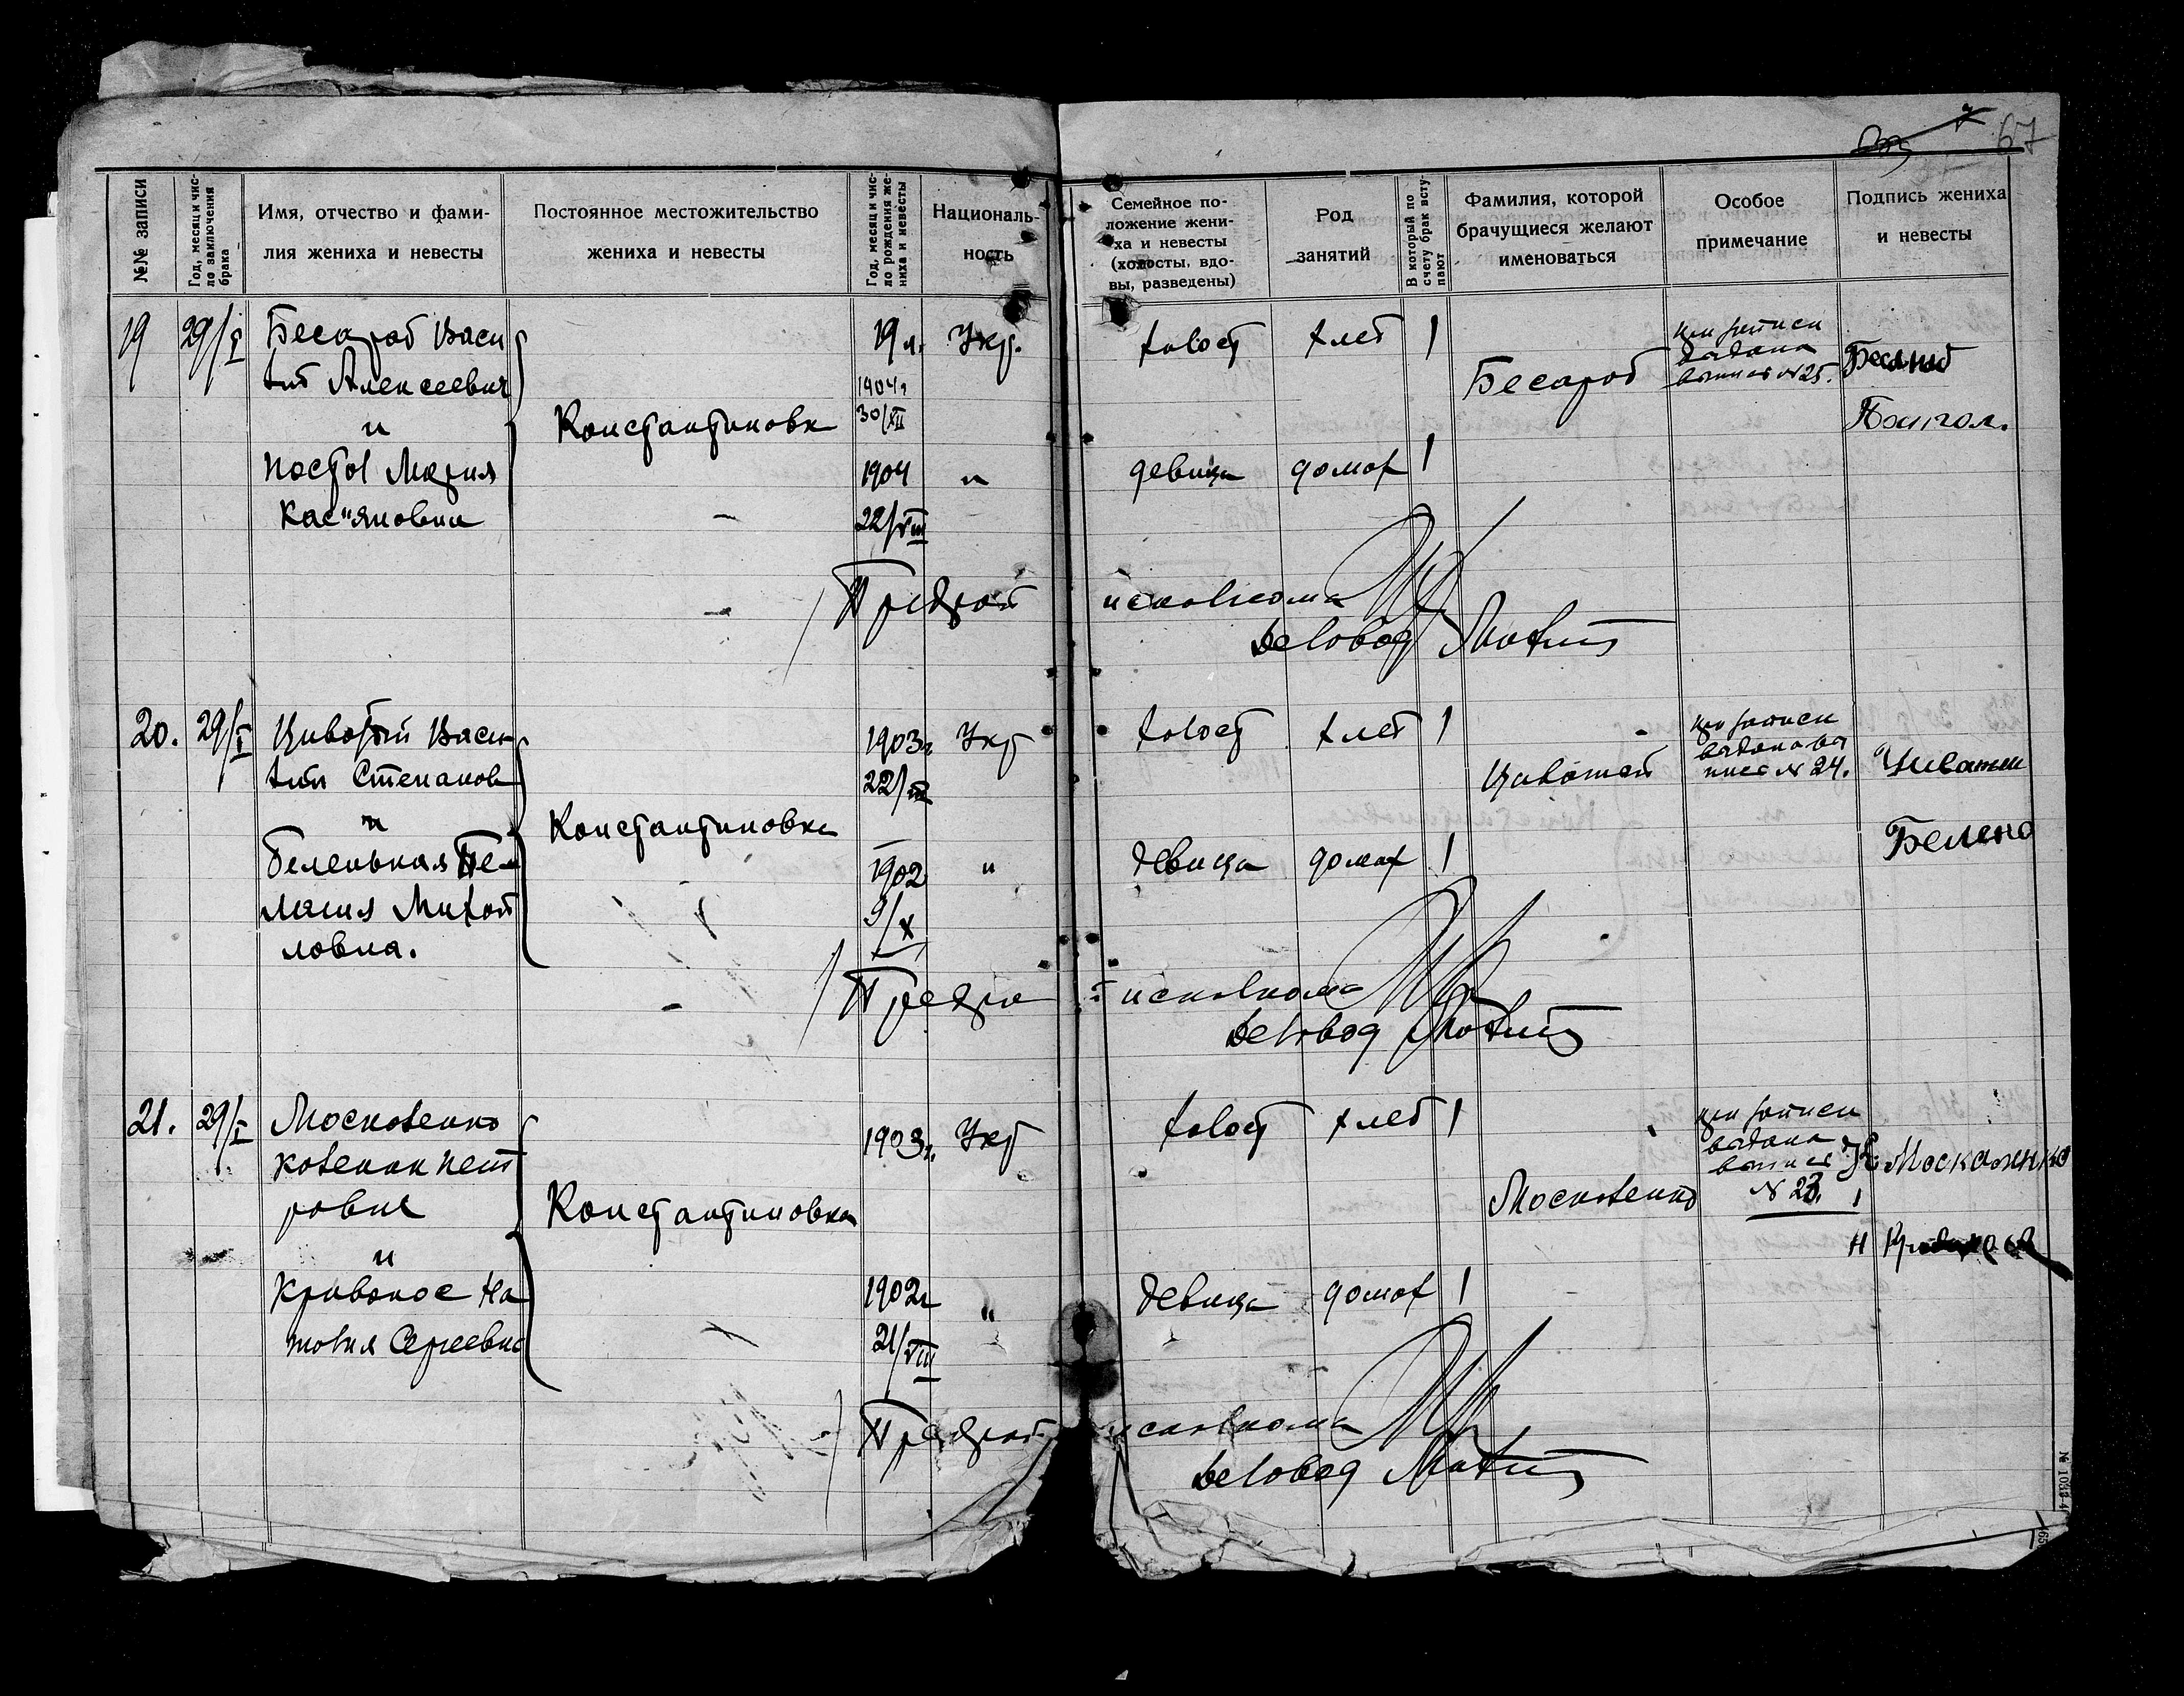 67
№№ записи
Год, месяц и чис-
ло заключения
брака
Имя, отчество и фами-
лия жениха и невесты
Постоянное местожительство
жениха и невесты
Год, месяц и чис-
ло рождения же-
ниха и невесты
Националь-
ность
Семейное по-
ложение жени-
ха и невесты
(холосты, вдо-
вы, разведены)
Род
занятий
В который по
счету брак всту-
пают
Фамилия, которой
брачущиеся желают
именоваться
Особое
примечание
Подпись жениха
и невесты
19
29/I
Бесараб Васи
лий Алексеевич
и
Мария
Кас"яновна
Константиновка
19 л.
1904г
30/XII
1904
22/VIII
Укр.
"
холост
девица
хлеб
домох
1
1
Бесараб
при записи
выдана
выпись №25.
Предрай
исполкома
Деловод
20.
29/I
Циватый Васи
лий Степанов
и
Беленькая Пе-
лагия Михай
ловна.
Константиновка
1903г
22/
1902
9/X
Укр
"
холост
девица
хлеб
домох
1
1
Циватый
при записи
выдана вы
пись № 24.
Белено
исполкома
Деловод
21.
29/I
Москаленко
Пет
ровна
и
Кривонос На
талия Сергеевна
Константиновка
1903г.
1902г
21/VIII
Укр
"
холост
девица
хлеб
домох
1
1
Москаленко
при записи
выдана
выпись
№ 23.
Москаленко
Н
Предрай
исполкома
Деловод